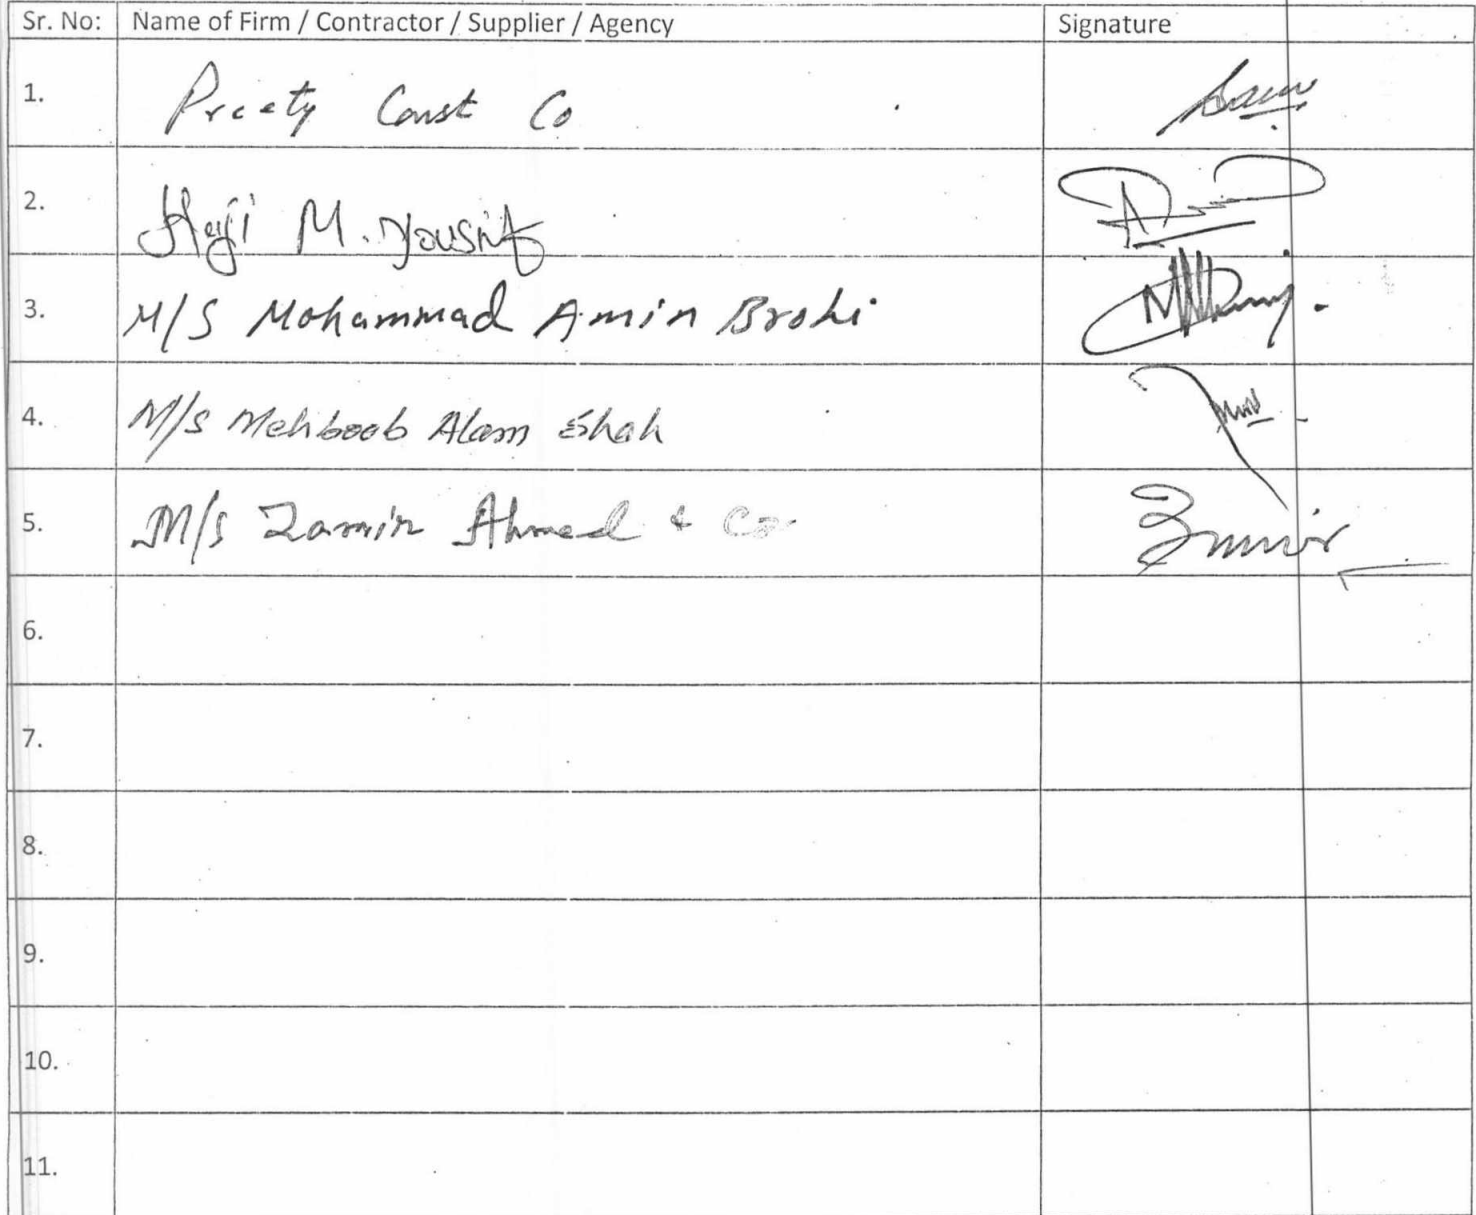 Sr. No: Name of Firm / Contractor / Supplier / Agency Signature
1. Preety Const Co
2. Haji M. Yousif
3. M/S Mohammad Amin Brohi
4. M/s Mehboob Alam Shah
5. M/s Zamin Ahmed & Co
6.
7.
8.
9.
10.
11.